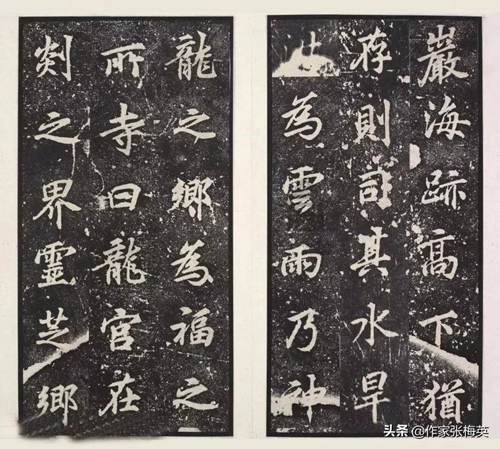 巖海跡高下猶
存則司其水旱
為雲雨乃神
龍之鄉為福之
所寺曰龍宮在
剡之界靈芝鄉
头条 @作家张梅英